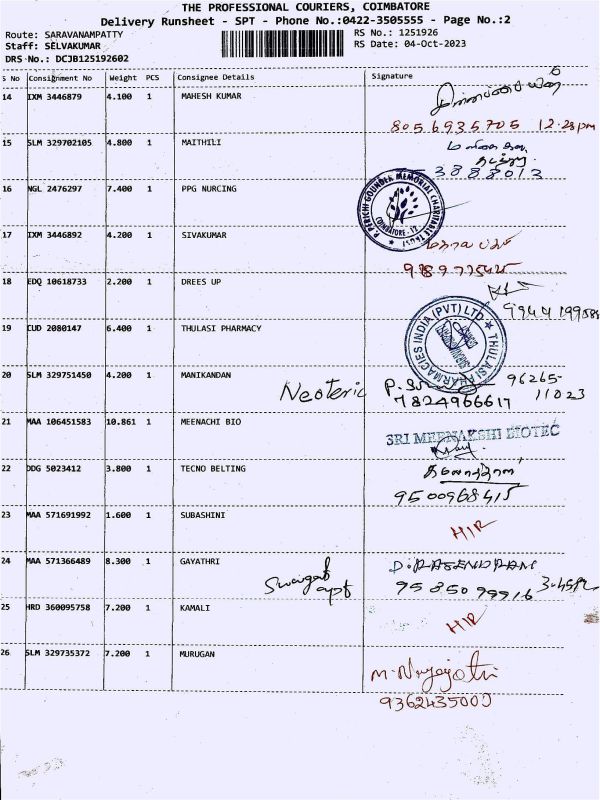 THE PROFESSIONAL COURIERS, COIMBATORE
Delivery Runsheet - SPT - Phone No.:0422-3505555 - Page No.:2
Route: SARAVANAMPATTY
Staff: SELVAKUMAR
DRS No.: DCJB125192602
RS No.: 1251926
RS Date: 04-Oct-2023
S No Consignment No Weight PCS Consignee Details Signature
14 IXM 3446879 4.100 1 MAHESH KUMAR
8056935705 12.23pm
15 SLM 329702105 4.800 1 MAITHILI
3888013
16 NGL 2476297 7.400 1 PPG NURCING
P. PERICHI GOUNDER MEMORIAL CHARITABLE TRUST
COIMBATORE - 12
17 IXM 3446892 4.200 1 SIVAKUMAR
18 EDQ 10618733 2.200 1 DREES UP
19 CUD 2080147 6.400 1 THULASI PHARMACY
THULASI PHARMACIES INDIA (PVT) LTD
20 SLM 329751450 4.200 1 MANIKANDAN Neoteric 96265-
7824966617 11023
21 MAA 106451583 10.861 1 MEENACHI BIO
SRI MEENAKSHI BIOTEC
22 DDG 5023412 3.800 1 TECNO BELTING
9500968415
23 MAA 571691992 1.600 1 SUBASHINI
24 MAA 571366489 8.300 1 GAYATHRI D.RAJENDRAN
apt 9585099916 3.45PM
25 HRD 360095758 7.200 1 KAMALI
26 SLM 329735372 7.200 1 MURUGAN
9362435000